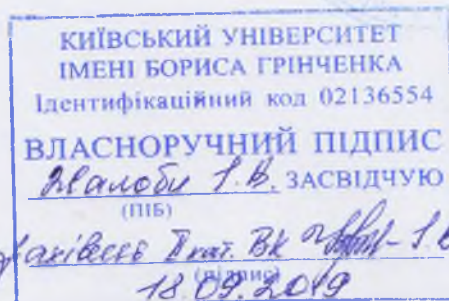 КИЇВСЬКИЙ УНІВЕРСИТЕТ
ІМЕНІ БОРИСА ГРІНЧЕНКА
Ідентифікаційний код 02136554
ВЛАСНОРУЧНИЙ ПІДПИС
Жалоби І.В. ЗАСВІДЧУЮ
(ПІБ)
ІІ кат. ВК
(підпис)
18.09.2019